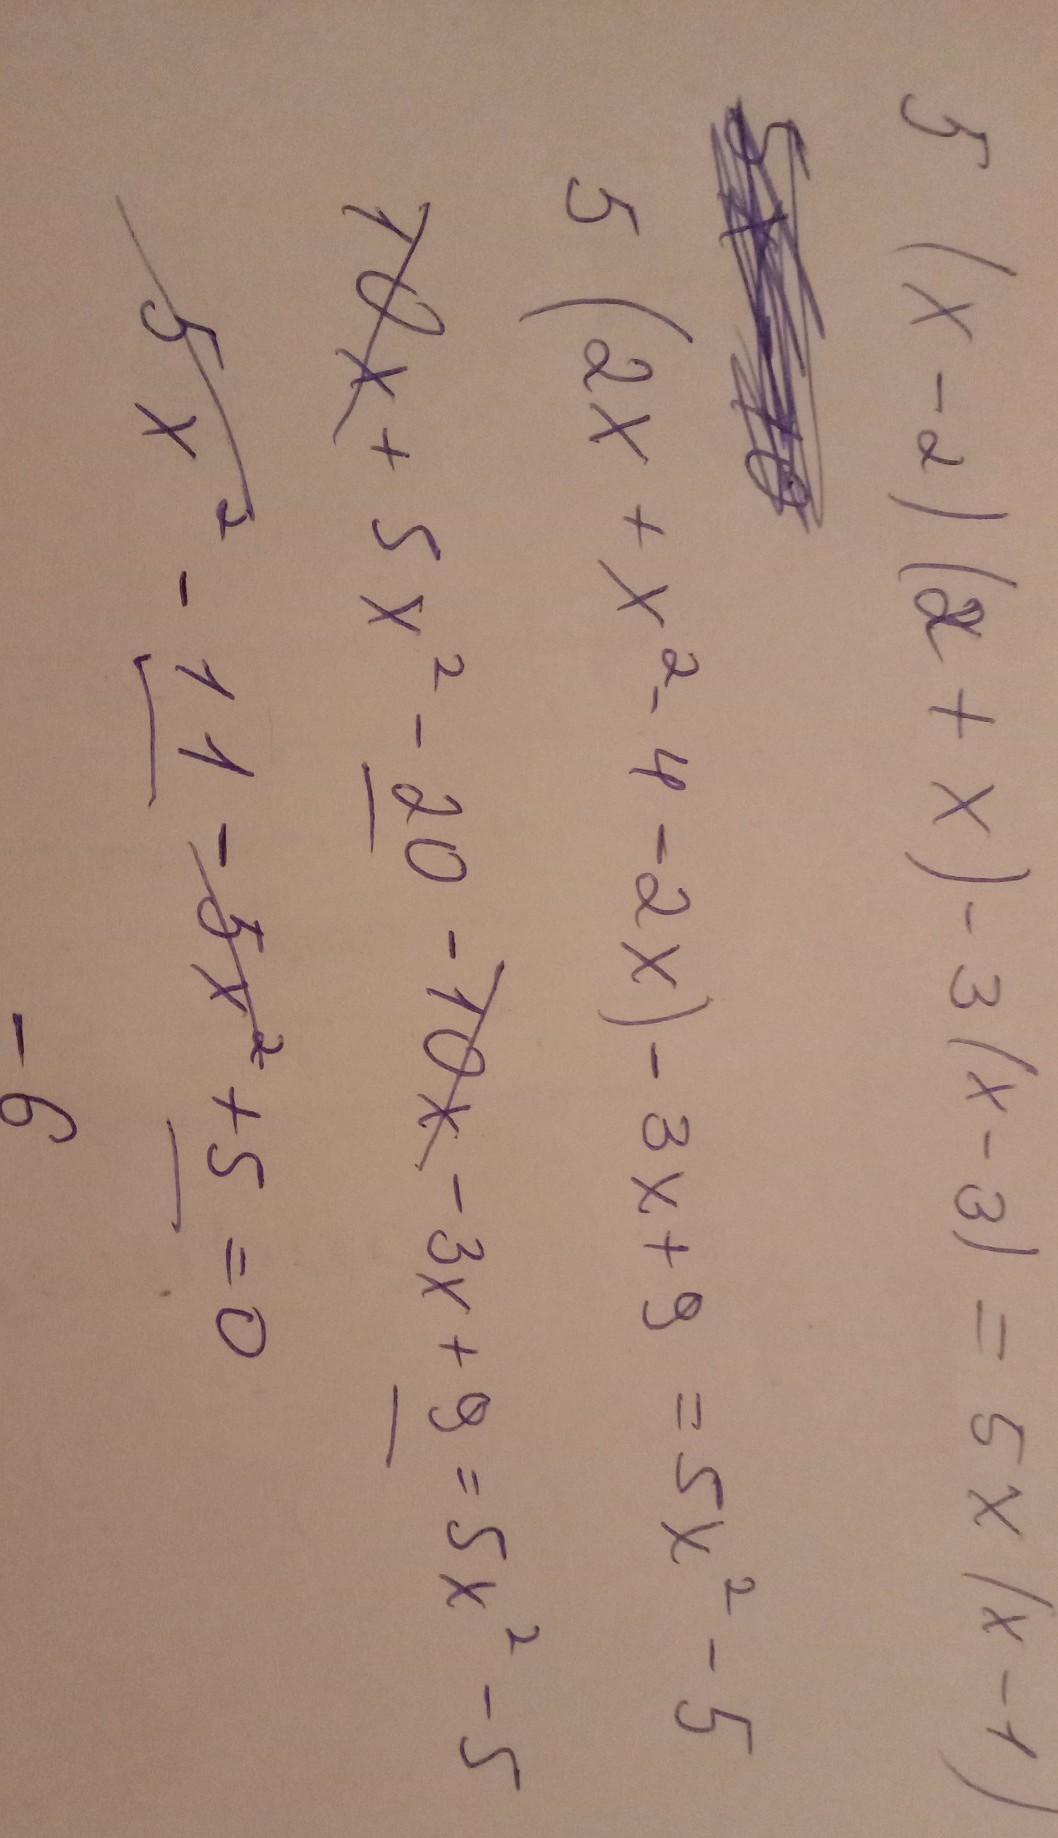 5 (x-2)(2+x)-3(x-3) = 5x(x-1)
5(2x+x²-4-2x)-3x+9 = 5x²-5
10x+5x²-20-10x-3x+9=5x²-5
5x²-11-5x²+5=0
-6